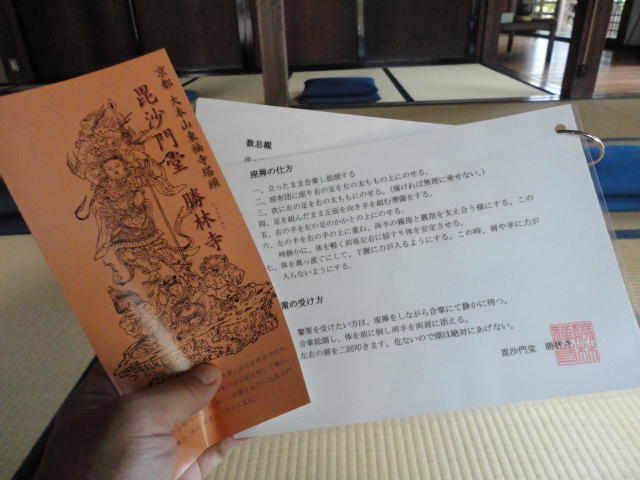 京都 大本山東福寺塔頭
毘沙門堂 勝林寺
数息観
座禅の仕方
一、立ったまま合掌し低頭する
二、座布団に座り右の足を左の太ももの上にのせる。
三、次に左の足を右の太ももにのせる。（痛ければ無理に乗せない。）
四、足を組んだまま正面を向き手を組む準備をする。
五、右の手を左の足のかかとの上にのせる。
六、左の手を右の手の上に重ね、両手の親指と親指を支え合う様にする。この
時静かに、体を軽く前後左右に揺すり体を安定させる。
七、体を真っ直ぐにして、下腹に力が入るようにする。この時、肩や手に力が
入らないようにする。
策の受け方
警策を受けたい方は、座禅をしながら合掌にて静かに待つ。
合掌低頭し、体を前に倒し両手を両肩に添える。
左右の肩を二回叩きます。危ないので頭は絶対にあげない。
毘沙門堂 勝林寺